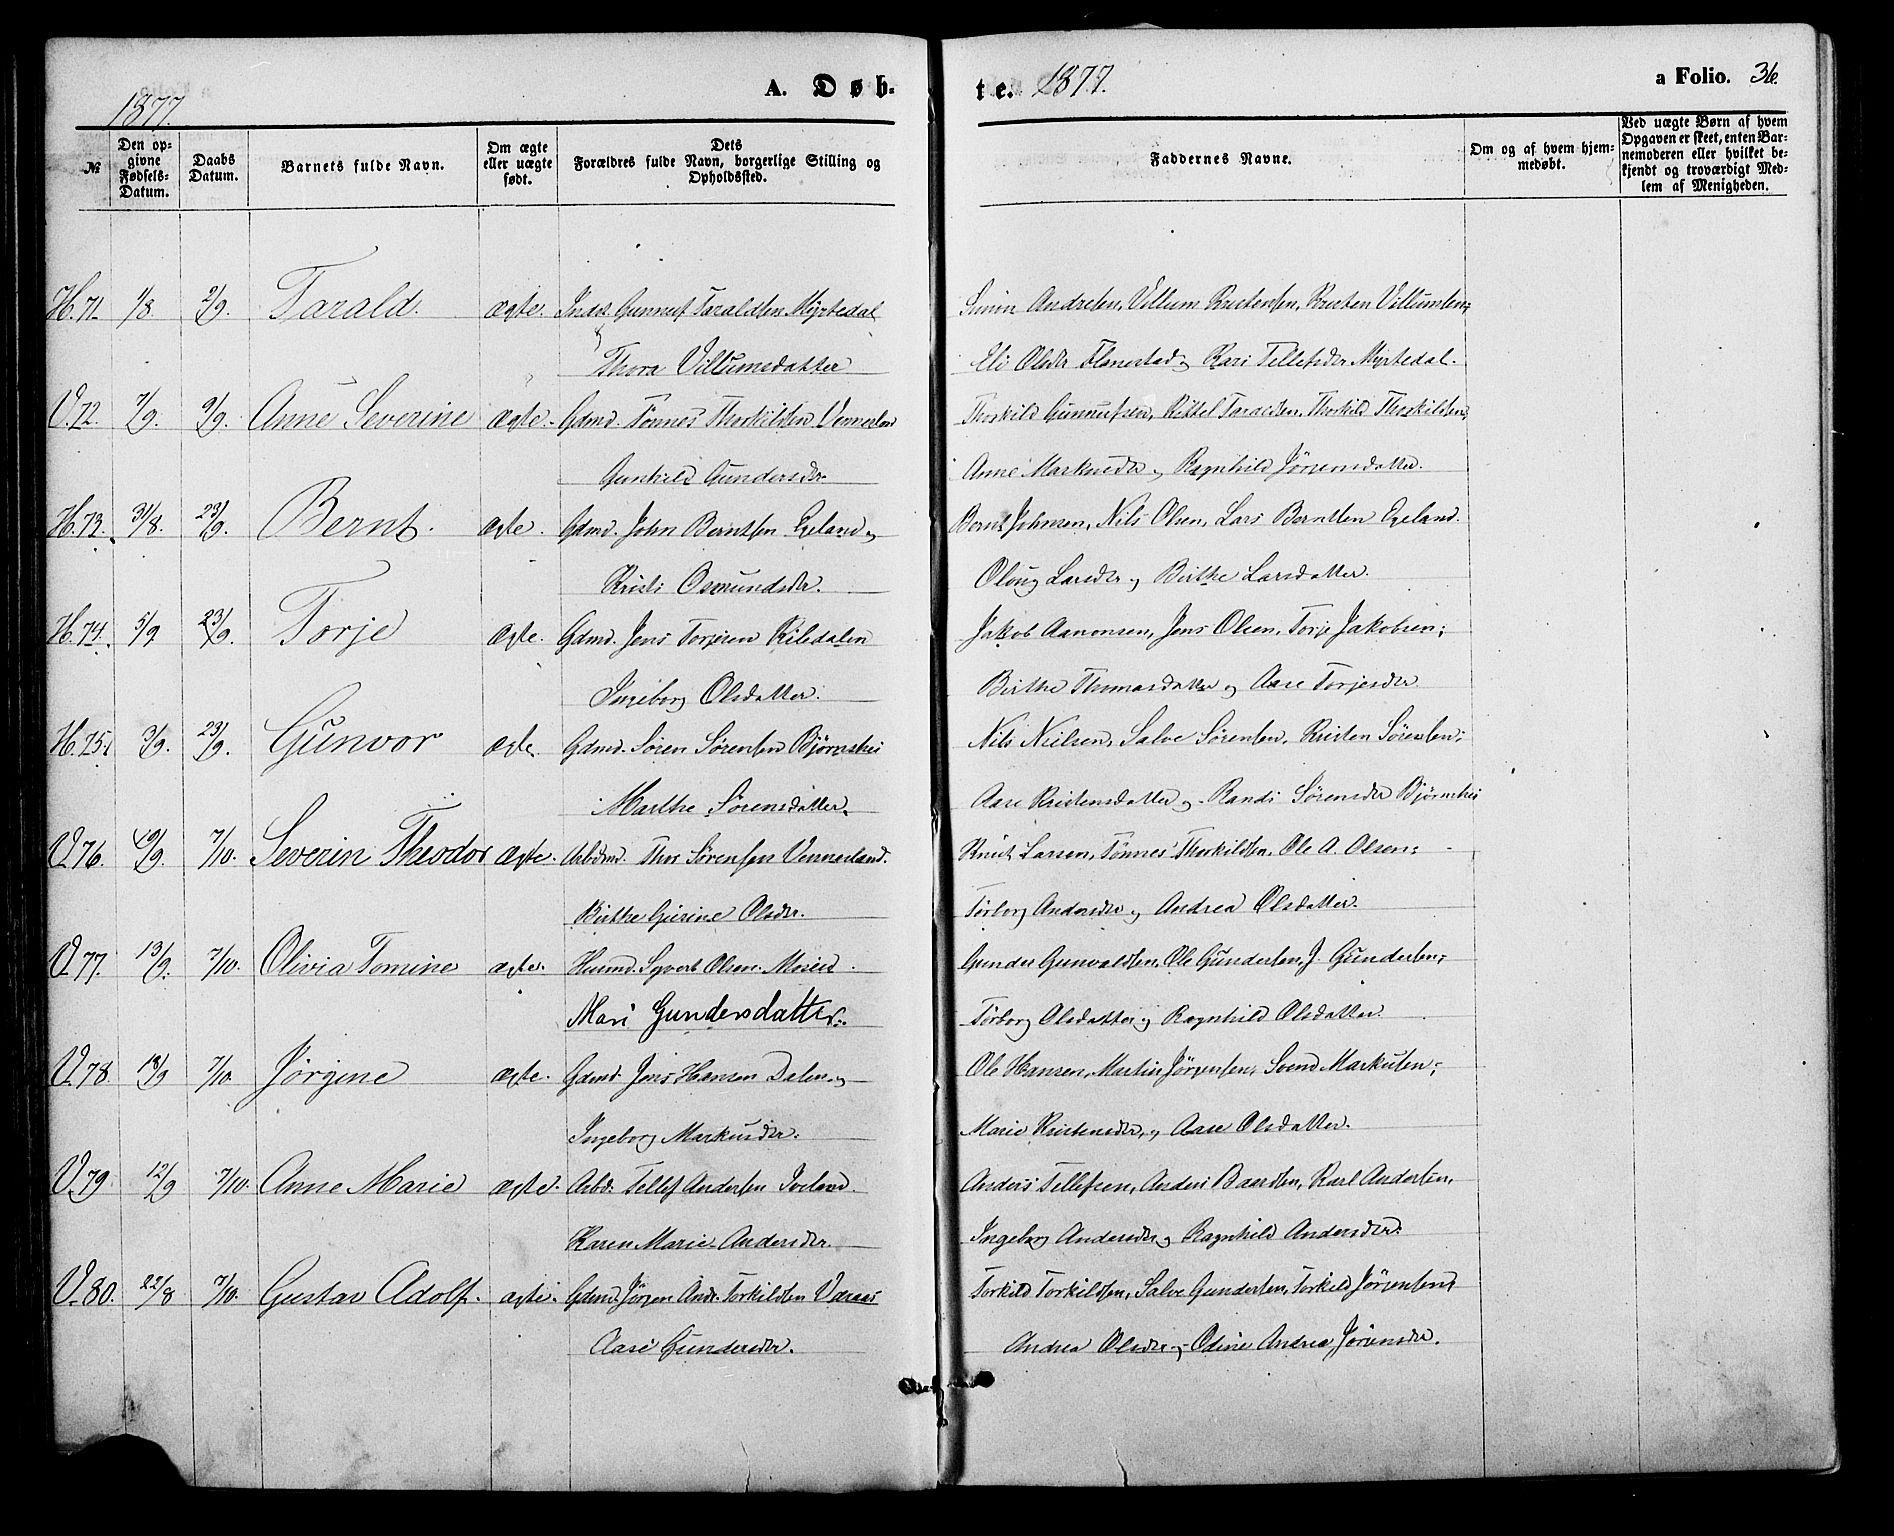 1877.
A. Døb-
te. 1877.
a Folio. 36.
№
Den op-
givne
Fødsels-
Datum.
Daabs
Datum.
Barnets fulde Navn.
Om ægte
eller uægte
født.
Dets
Forældres fulde Navn, borgerlige Stilling og
Opholdssted.
Faddernes Navne.
Om og af hvem hjem-
medøbt.
Ved uægte Børn af hvem
Opgaven er skeet, enten Bar-
nemoderen eller hvilket be-
kjendt og troværdigt Med-
lem af Menigheden.
H. 71. 1/8. 2/9. Tarald. ægte. Inds. Gunnuf Taraldsen Myrtedal
Simon Andresen, Villum Kristensen, Kristen Villumsen;
& Thora Villumsdatter
Eli Olsdr Flanestad og Kari Tellefsdr Myrtedal.
V. 72. 7/9. 9/9. Anne Severine ægte. Gdmd. Tønnes Thorkildsen Vennesland
Thorkild Gunnufsen, Kittel Taraldsen, Thorkild Thorkildsen,
Gunhild Gundersdr.
Anne Markusdr og Ragnhild Jörgensdatter.
H. 73. 31/8. 23/9. Bernt. ægte. Gdmd. John Berntsen Egeland og
Bernt Johnsen, Nils Olsen, Lars Berntsen Egeland.
Kristi Osmundsdr.
Oloug Larsdr og Birthe Larsdatter.
H. 74. 5/9 23/9. Torje ægte. Gdmd. Jens Torjesen Kiledalen
Jakob Aanonsen, Jens Olsen, Torje Jakobsen;
Ingeborg Olsdatter.
Birthe Thomasdatter og Aase Torjesdr
H. 75. 3/9. 23/9. Gunvor ægte Gdmd. Sören Sörensen Björnskei
Nils Nielsen, Salve Sörensen, Kristen Sörensen;
Marthe Sörensdatter.
Aase Kristensdatter og Randi Sörensdr Björnskei
V. 76. 19/9. 7/10. Severin Theodor ægte. Arbdmd. Thor Sörensen Vennesland.
Knut Larsen, Tönnes Thorkildsen, Ole A. Olsen;
Birthe Gurine Olsdr.
Torborg Andersdr og Andrea Olsdatter.
V. 77. 13/9. 7/10. Olivia Tomine ægte. Husmd. Syvert Olsen Moseid
Gunder Gunvaldsen, Ole Gundersen, J. Gundersen;
Mari Gundersdatter.
Torborg Olsdatter og Ragnhild Olsdatter.
V. 78. 18/9 7/10. Jörgine ægte. Gdmd. Jens Hansen Dalen og
Ole Hansen, Martin Jörgensen, Svend Markusen;
Ingeborg Markusdr.
Marie Kristensdr, og Aase Olsdatter.
V. 79. 12/9 7/10. Anne Marie ægte. Arbd. Tellef Andersen Iveland.
Anders Tellefsen, Anders Baardsen, Karl Andersen,
Karen Marie Andersdr.
Ingeborg Andersdr og Ragnhild Andersdr.
V. 80. 22/8 7/10. Gustav Adolf. ægte. Gdmd. Jörgen Andr. Torkildsen Varaas
Torkild Torkildsen, Salve Gundersen, Torkild Jörgensen;
Aase Gundersdr.
Andrea Olsdr og Odine Andrea Jörgensdr.